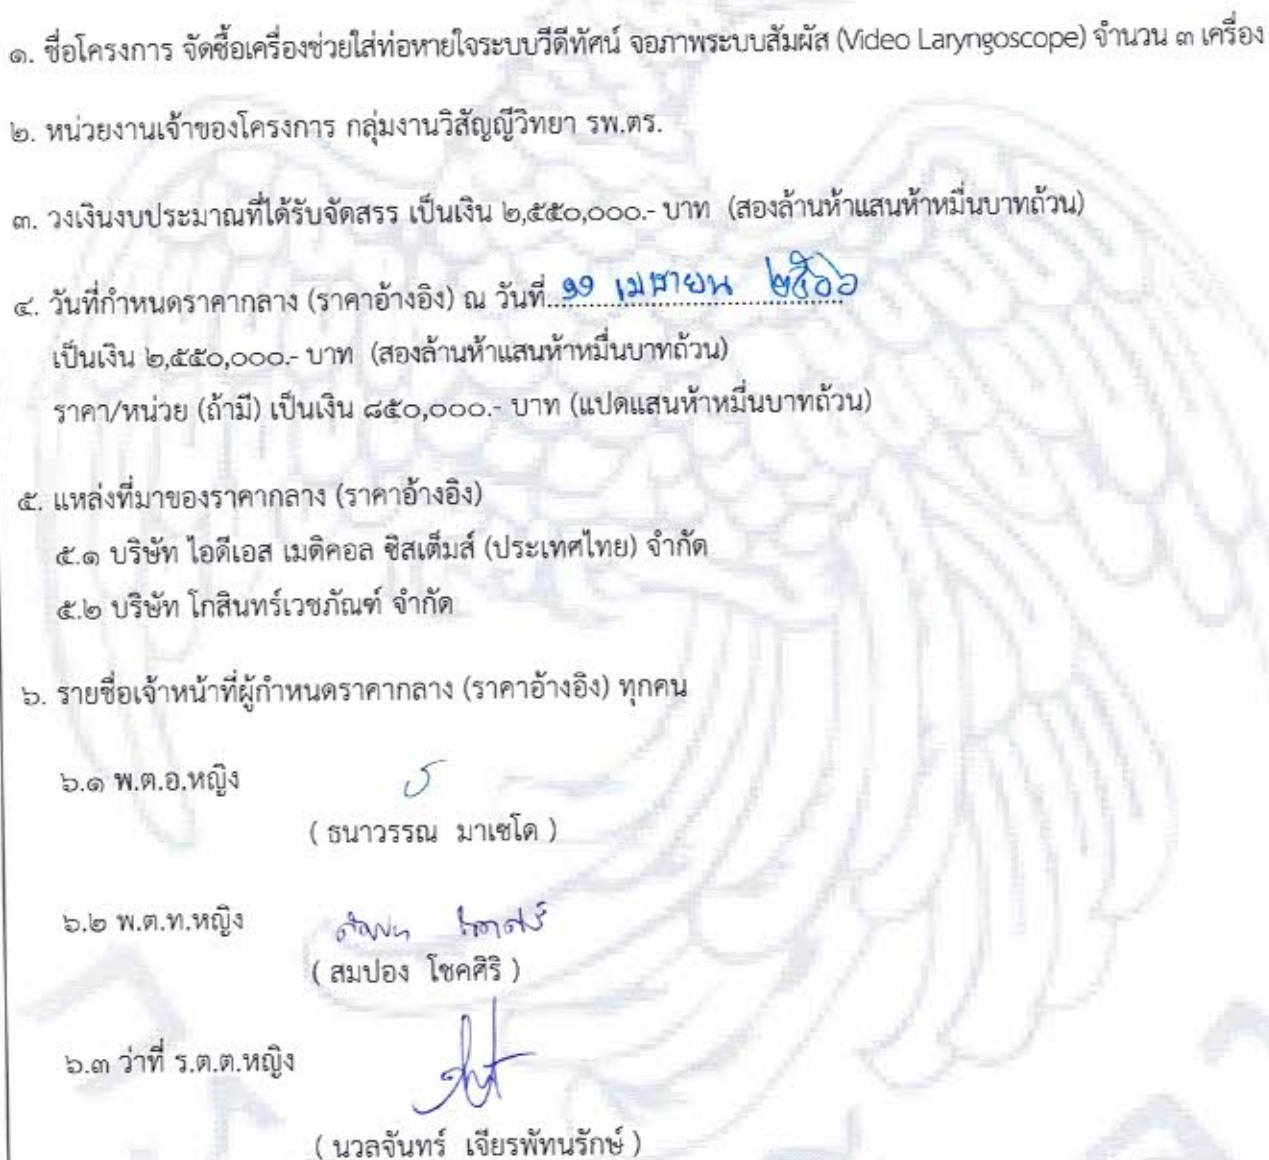 ๑. ชื่อโครงการ จัดซื้อเครื่องช่วยใส่ท่อหายใจระบบวีดีทัศน์ จอภาพระบบสัมผัส (Video Laryngoscope) จำนวน ๓ เครื่อง
๒. หน่วยงานเจ้าของโครงการ กลุ่มงานวิสัญญีวิทยา รพ.ตร.
๓. วงเงินงบประมาณที่ได้รับจัดสรร เป็นเงิน ๒,๕๕๐,๐๐๐.- บาท (สองล้านห้าแสนห้าหมื่นบาทถ้วน)
๔. วันที่กำหนดราคากลาง (ราคาอ้างอิง) ณ วันที่ ๑๑ เมษายน ๒๕๖๖
เป็นเงิน ๒,๕๕๐,๐๐๐.- บาท (สองล้านห้าแสนห้าหมื่นบาทถ้วน)
ราคา/หน่วย (ถ้ามี) เป็นเงิน ๘๕๐,๐๐๐.- บาท (แปดแสนห้าหมื่นบาทถ้วน)
๕. แหล่งที่มาของราคากลาง (ราคาอ้างอิง)
๕.๑ บริษัท ไอดีเอส เมดิคอล ซิสเต็มส์ (ประเทศไทย) จำกัด
๕.๒ บริษัท โกสินทร์เวชภัณฑ์ จำกัด
๖. รายชื่อเจ้าหน้าที่ผู้กำหนดราคากลาง (ราคาอ้างอิง) ทุกคน
๖.๑ พ.ต.อ.หญิง
( ธนาวรรณ มาเซโด )
๖.๒ พ.ต.ท.หญิง
( สมปอง โชคศิริ )
๖.๓ ว่าที่ ร.ต.ต.หญิง
( นวลจันทร์ เจียรพัทนรักษ์ )